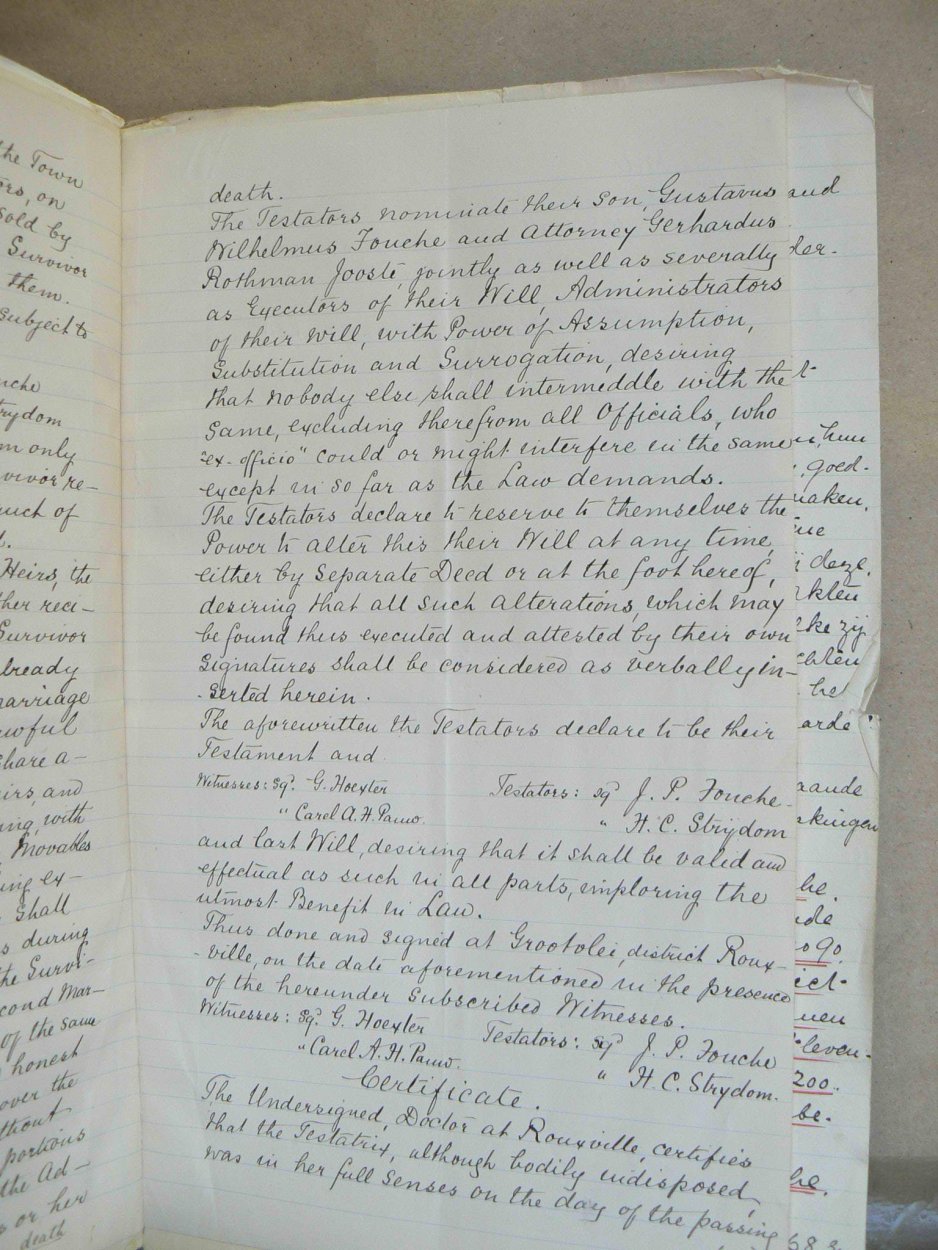 the Town
ors, on
sold by
Survivor
them.
subject to
uche
trydom
m only
vivor re-
uct of
Heirs, the
ther reci-
Survivor
already
marriage
awful
share a-
irs, and
ing, with
Movables
ing ex-
shall
s during
the Survi-
cond Mar-
of the same
honest
over the
thout
portions
the Ad-
s or her
death
death.
The Testators nominate their son, Gustavus
Wilhelmus Fouche and Attorney Gerhardus
Rothman Jooste, jointly as well as severally
as Executors of their Will, Administrators
of their Will, with Power of Assumption,
Substitution and Surrogation, desiring
that nobody else shall intermeddle with the
same, excluding therefrom all Officials, who
"ex-officio" could or might interfere in the same
except in so far as the Law demands.
The Testators declare to reserve to themselves the
Power to alter this their Will at any time,
either by Separate Deed or at the foot hereof,
desiring that all such alterations, which may
be found thus executed and attested by their own
signatures shall be considered as verbally in-
-serted herein.
The aforewritten the Testators declare to be their
Testament and
Witnesses: sg. G. Hoexter Testators: sg J. P. Fouche
" Carel A. H. Pauw. " H. C. Strydom
and last Will, desiring that it shall be valid and
effectual as such in all parts, imploring the
utmost Benefit in Law.
Thus done and signed at Grootvlei, district Roux-
-ville, on the date aforementioned in the presence
of the hereunder subscribed Witnesses.
Witnesses: sg. G. Hoexter Testators: sg J. P. Fouche
" Carel A. H. Pauw. " H. C. Strydom.
Certificate.
The Undersigned, Doctor at Rouxville, certifies
that the Testatrix, although bodily indisposed,
was in her full senses on the day of the passing
and
der-
t-
hun
goed-
maken,
deze
kten
ke zij
chten
he
arde
aande
kingen
he.
de
90.
ict-
uen
leven-
200.
be-
he.